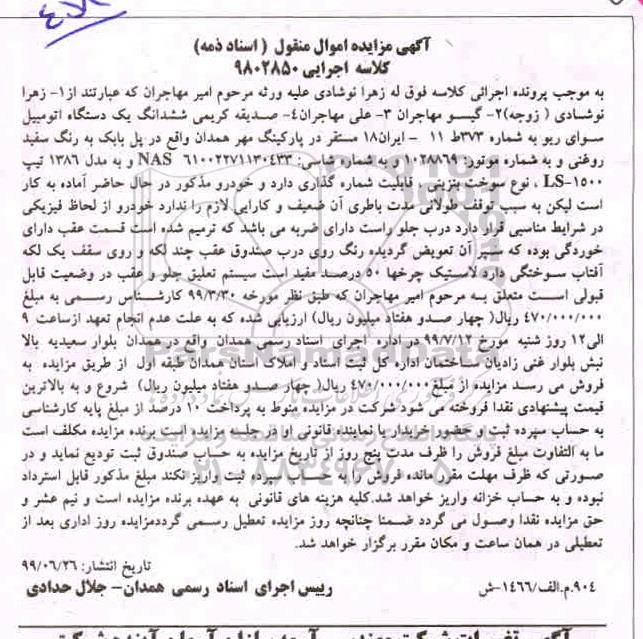 آگهی مزایده اموال منقول (اسناد ذمه)
کلاسه اجرایی ۹۸۰۲۸۵۰
به موجب پرونده اجرائی کلاسه فوق له زهرا نوشادی علیه ورثه مرحوم امیر مهاجران که عبارتند از۱- زهرا
نوشادی ( زوجه)۲- گیسو مهاجران ۳- علی مهاجران۴- صدیقه کریمی ششدانگ یک دستگاه اتومبیل
سوای ریو به شماره ۳۷۳ط ۱۱ - ایران۱۸ مستقر در پارکینگ مهر همدان واقع در پل بابک به رنگ سفید
روغنی و به شماره موتور: ۱۰۲۸۸۶۹ و به شماره شاسی: NAS ۶۱۰۰۲۲۷۱۱۳۰۴۳۳ و به مدل ۱۳۸۶ تیپ
LS-۱۵۰۰ ، نوع سوخت بنزینی ، قابلیت شماره گذاری دارد و خودرو مذکور در حال حاضر آماده به کار
است لیکن به سبب توقف طولانی مدت باطری آن ضعیف و کارایی لازم را ندارد خودرو از لحاظ فیزیکی
در شرایط مناسبی قرار دارد درب جلو راست دارای ضربه می باشد که ترمیم شده است قسمت عقب دارای
خوردگی بوده که سپر آن تعویض گردیده رنگ روی درب صندوق عقب چند لکه و روی سقف یک لکه
آفتاب سوختگی دارد لاستیک چرخها ۵۰ درصد مفید است سیستم تعلیق جلو و عقب در وضعیت قابل
قبولی است متعلق به مرحوم امیر مهاجران که طبق نظر مورخه ۹۹/۳/۳۰ کارشناس رسمی به مبلغ
۴۷۰/۰۰۰/۰۰۰ ریال( چهار صدو هفتاد میلیون ریال) ارزیابی شده که به علت عدم انجام تعهد ازساعت ۹
الی۱۲ روز شنبه مورخ ۹۹/۷/۱۲ در اداره اجرای اسناد رسمی همدان واقع در همدان بلوار سعیدیه بالا
نبش بلوار غنی زادیان ساختمان اداره کل ثبت اسناد و املاک استان همدان طبقه اول از طریق مزایده به
فروش می رسد مزایده از مبلغ۴۷۰/۰۰۰/۰۰۰ ریال( چهار صدو هفتاد میلیون ریال) شروع و به بالاترین
قیمت پیشنهادی نقدا فروخته می شود شرکت در مزایده منوط به پرداخت ۱۰ درصد از مبلغ پایه کارشناسی
به حساب سپرده ثبت و حضور خریدار یا نماینده قانونی او در جلسه مزایده است برنده مزایده مکلف است
ما به التفاوت مبلغ فروش را ظرف مدت پنج روز از تاریخ مزایده به حساب صندوق ثبت تودیع نماید و در
صورتی که ظرف مهلت مقرر مانده فروش را به حساب سپرده ثبت واریز نکند مبلغ مذکور قابل استرداد
نبوده و به حساب خزانه واریز خواهد شد.کلیه هزینه های قانونی به عهده برنده مزایده است و نیم عشر و
حق مزایده نقدا وصول می گردد ضمنا چنانچه روز مزایده تعطیل رسمی گرددمزایده روز اداری بعد از
تعطیلی در همان ساعت و مکان مقرر برگزار خواهد شد.
تاریخ انتشار: ۹۹/۰۶/۲۶
رییس اجرای اسناد رسمی همدان- جلال حدادی
۹۰۴.م.الف/۱۴۶۶-ش